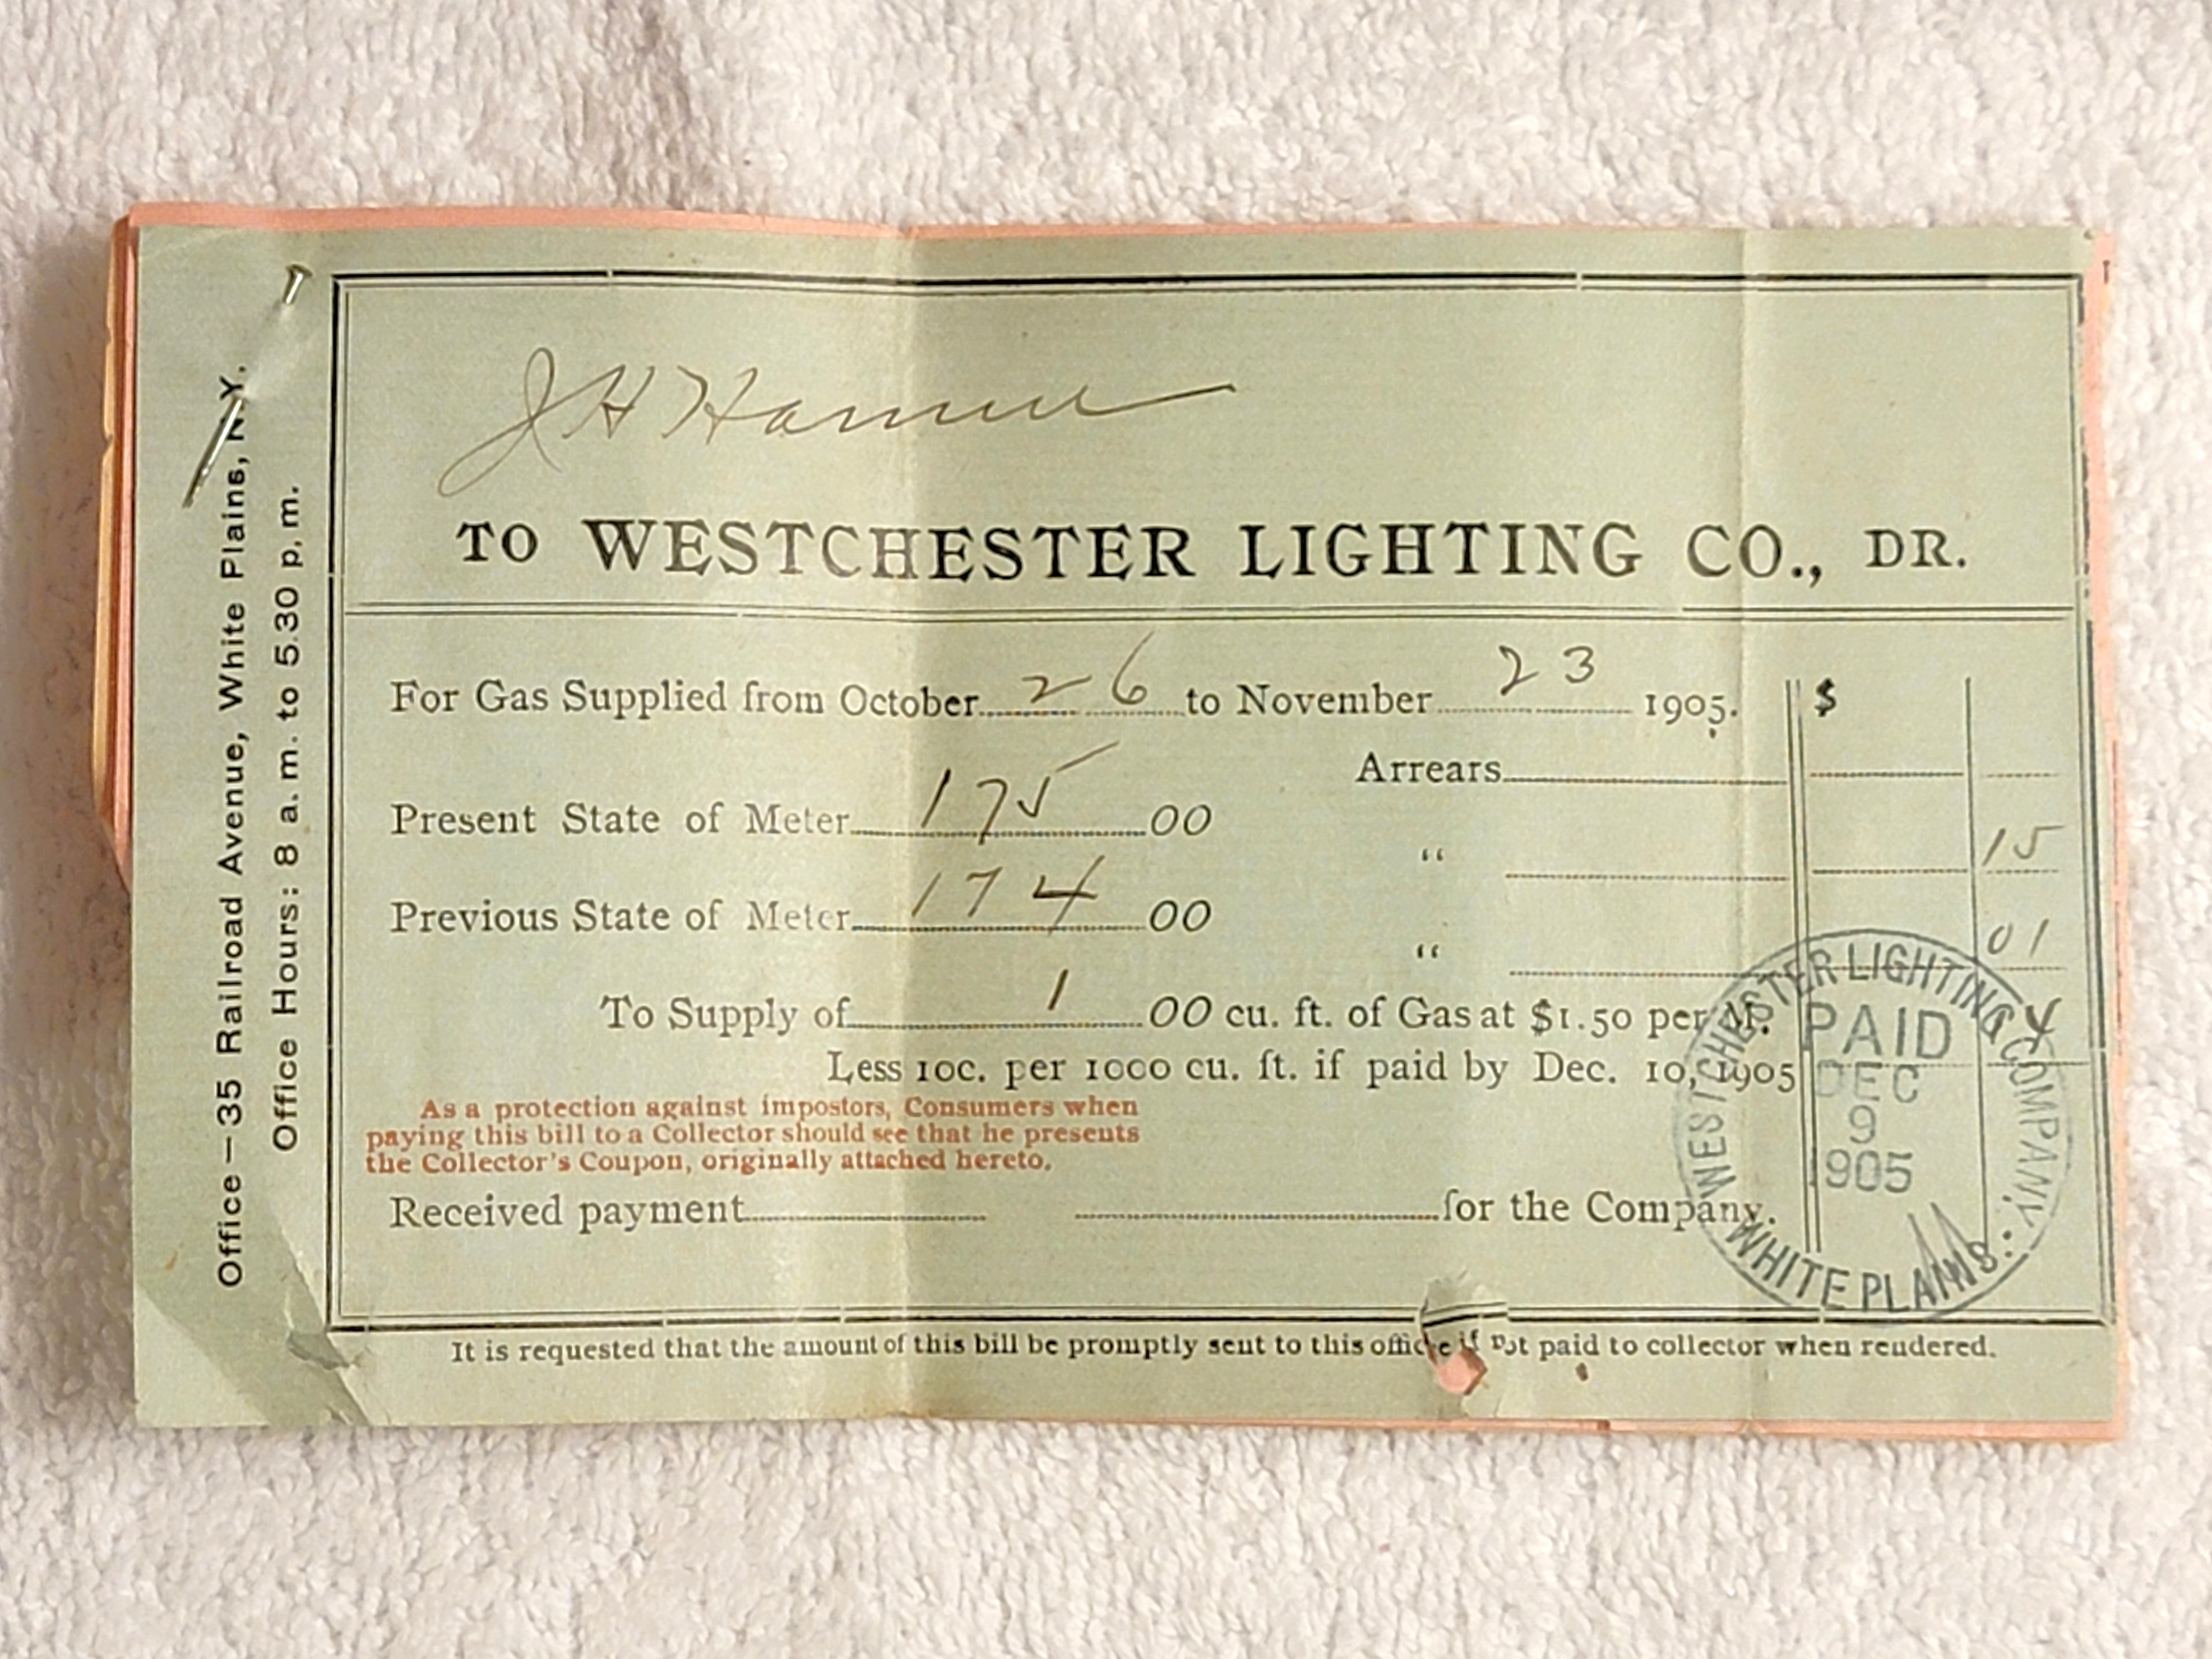 Office—35 Railroad Avenue, White Plains, N.Y.
Office Hours: 8 a. m. to 5.30 p. m.
J H
TO WESTCHESTER LIGHTING CO., DR.
For Gas Supplied from October 26 to November 23 1905. $
Arrears
Present State of Meter 175 00
" 15
Previous State of Meter 174 00
" 01
To Supply of 1 00 cu. ft. of Gas at $1.50 per M. 14
Less 10c. per 1000 cu. ft. if paid by Dec. 10, 1905
As a protection against impostors, Consumers when
paying this bill to a Collector should see that he presents
the Collector's Coupon, originally attached hereto.
Received payment for the Company.
WESTCHESTER LIGHTING COMPANY.
PAID
DEC
9
1905
WHITE PLAINS.
It is requested that the amount of this bill be promptly sent to this office if not paid to collector when rendered.